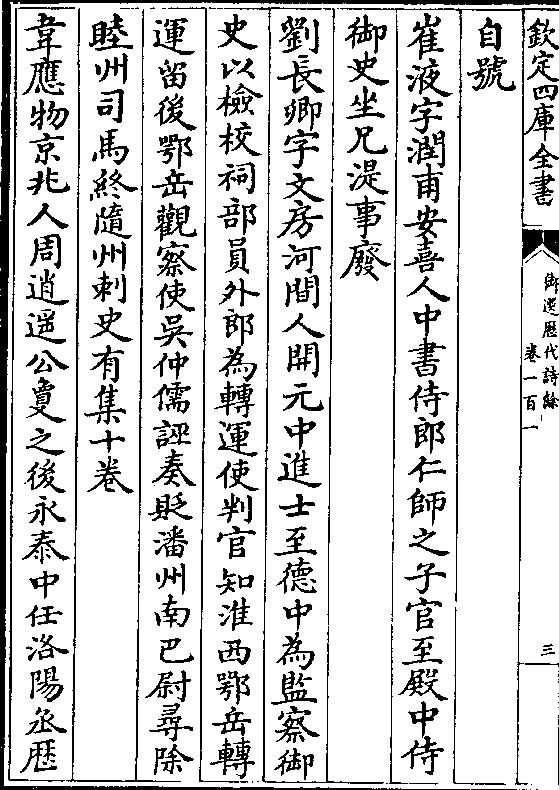 欽定四庫全書
御選歷代詩餘
卷一百一
三
自號
崔液字潤甫安喜人中書侍郎仁師之子官至殿中侍
御史坐兄湜事廢
劉長卿字文房河間人開元中進士至德中為監察御
史以檢校祠部員外郎為轉運使判官知淮西鄂岳轉
運留後鄂岳觀察使吳仲儒誣奏貶潘州南巴尉尋除
睦州司馬終隨州刺史有集十卷
韋應物京兆人周逍遙公敻之後永泰中任洛陽丞歷